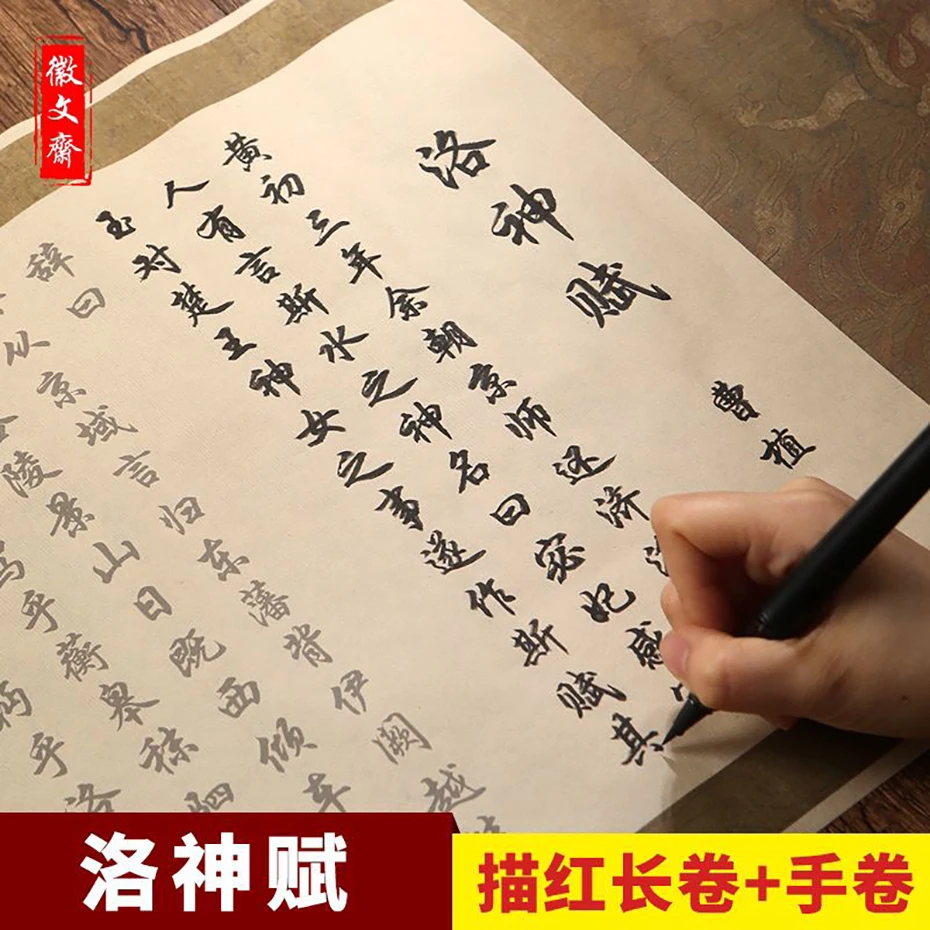 徽文齋
洛神赋
曹植
黄初三年余朝京师还济
人有言斯水之神名曰宓妃感
玉对楚王神女之事遂作斯赋其
辞曰
从京域言归东藩背伊阙越
陵景山日既西倾车
乎蘅皋秣驷
乎洛
洛神赋
描红长卷+手卷